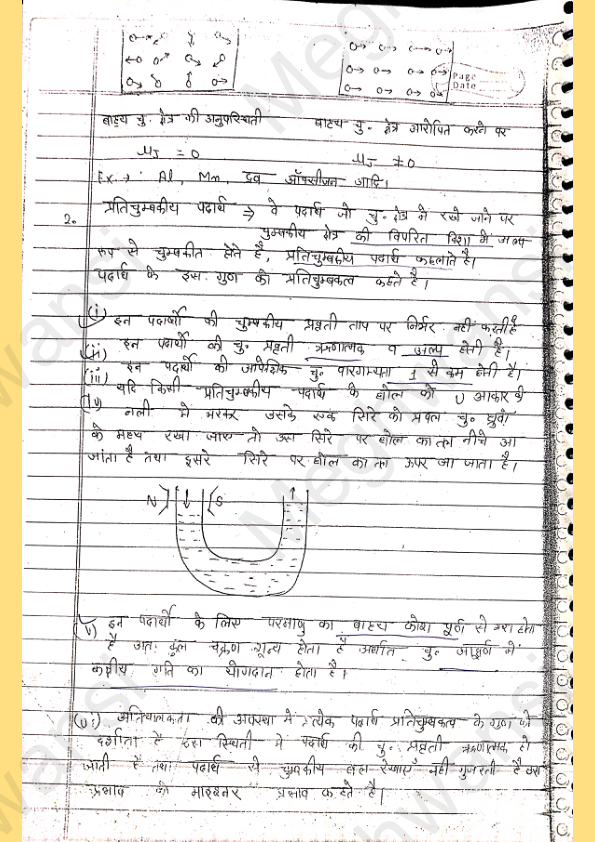 Page
Date
बाह्य चु. क्षेत्र की अनुपस्थिती बाह्य चु. क्षेत्र आरोपित करने पर
μJ = 0 μJ ≠ 0
Ex. → Al, Mn, द्रव ऑक्सीजन आदि।
2. प्रतिचुम्बकीय पदार्थ ⇒ वे पदार्थ जो चु. क्षेत्र मे रखे जाने पर
चुम्बकीय क्षेत्र की विपरित दिशा में अल्प
रूप से चुम्बकीत होते है, प्रतिचुम्बकीय पदार्थ कहलाते है।
पदार्थ के इस गुण को प्रतिचुम्बकत्व कहते है।
(i) इन पदार्थो की चुम्बकीय प्रवृती ताप पर निर्भर नही करती है
(ii) इन पदार्थो की चु. प्रवृती ऋणात्मक व अल्प होती है।
(iii) इन पदार्थो की आपेक्षिक चु. पारगम्यता 1 से कम होती है।
(iv) यदि किसी प्रतिचुम्बकीय पदार्थ के घोल को U आकार की
नली में भरकर उसके एक सिरे को प्रबल चु. ध्रुवो
के मध्य रखा जाए तो उस सिरे पर घोल का तल नीचे आ
जाता है तथा दुसरे सिरे पर घोल का तल ऊपर जा जाता है।
N S
(v) इन पदार्थो के लिए परमाणु का बाह्य कोश पूर्ण से भरा होता
है अतः कुल चक्रण शून्य होता है अर्थात चु. आघूर्ण में
कक्षीय गति का योगदान होता है।
(vi) अतिचालकता की अवस्था मे प्रत्येक पदार्थ प्रतिचुम्बकत्व के गुण को
दर्शाता है इस स्थिती मे पदार्थ की चु. प्रवृती ऋणात्मक हो
जाती है तथा पदार्थ से चुम्बकीय बल रेखाएँ नही गुजरती है इस
प्रभाव को माइस्नर प्रभाव कहते है।
Meghwansi